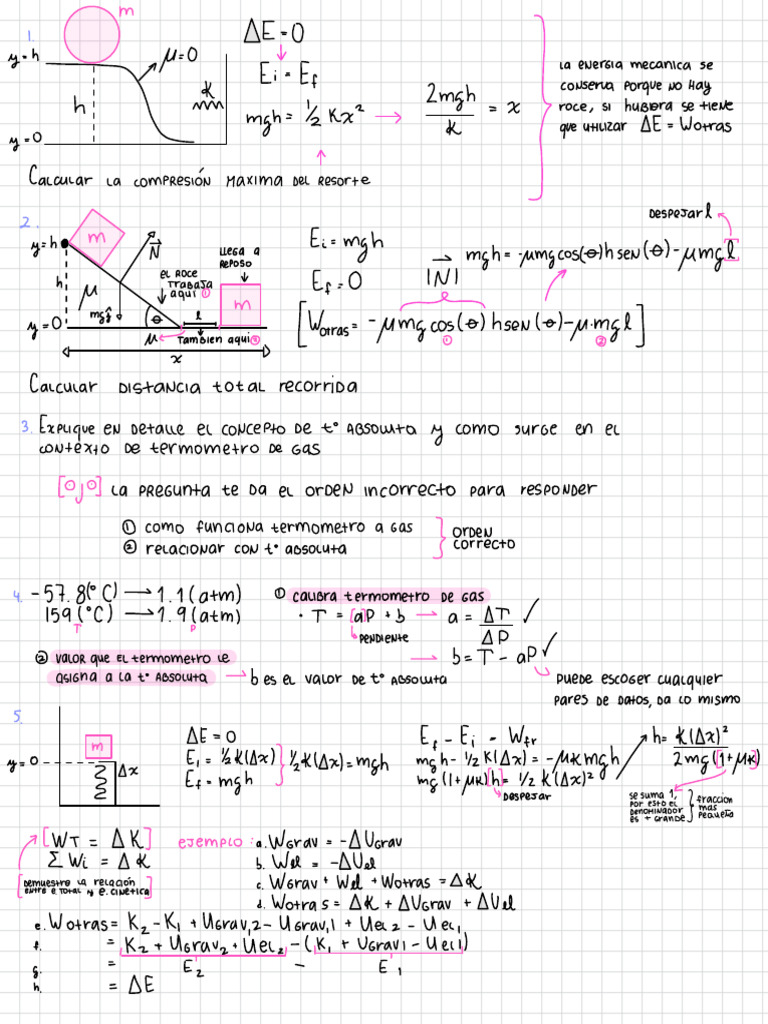 1.
m
y = h
μ = 0
h
K
y = 0
ΔE = 0
Ei = Ef
mgh = 1/2 Kx²
2mgh / K = x
La energia mecanica se
conserva porque no hay
roce, si hubiera se tiene
que utilizar ΔE = Wotras
Calcular la compresión maxima del resorte
2.
y = h
m
N
llega a
reposo
h
μ
el roce
trabaja
aqui ①
mgŷ
θ
l
m
y = 0
μ
tambien aqui ②
x
Ei = mgh
Ef = 0
|N|
Despejar l
mgh = -μmgcos(θ)hsen(θ) - μmgl
[Wotras = -μmgcos(θ)hsen(θ) - μ·mgl]
① ②
Calcular distancia total recorrida
3. Explique en detalle el concepto de t° absoluta y como surge en el
contexto de termometro de gas
[ojo] la pregunta te da el orden incorrecto para responder
① como funciona termometro a gas
② relacionar con t° absoluta
orden
correcto
4. -57.8(°C) → 1.1(atm)
159(°C) → 1.9(atm)
T P
① calibra termometro de gas
· T = [a]P + b → a = ΔT / ΔP ✓
pendiente
→ b = T - aP ✓
② valor que el termometro le
asigna a la t° absoluta → b es el valor de t° absoluta
puede escoger cualquier
pares de datos, da lo mismo
5.
m
y = 0
Δx
ΔE = 0
E1 = 1/2K(Δx)
Ef = mgh
1/2K(Δx) = mgh
Ef - Ei = Wfr
mgh - 1/2 K(Δx) = -μKmgh
mg(1+μK)[h] = 1/2 K(Δx)²
despejar
h = K(Δx)² / 2mg(1+μK)
se suma 1,
por esto el
denominador
es + grande
fraccion
mas
pequeña
[WT = ΔK]
ΣWi = ΔK
[demuestra la relación
entre e. total y e. cinética]
ejemplo: a. Wgrav = -ΔUgrav
b. Wel = -ΔUel
c. Wgrav + Wel + Wotras = ΔK
d. Wotras = ΔK + ΔUgrav + ΔUel
e. Wotras = K2 - K1 + Ugrav,2 - Ugrav,1 + Uel2 - Uel1
f. = K2 + Ugrav2 + Uel2 - (K1 + Ugrav1 - Uel1)
g. = E2 - E1
h. = ΔE